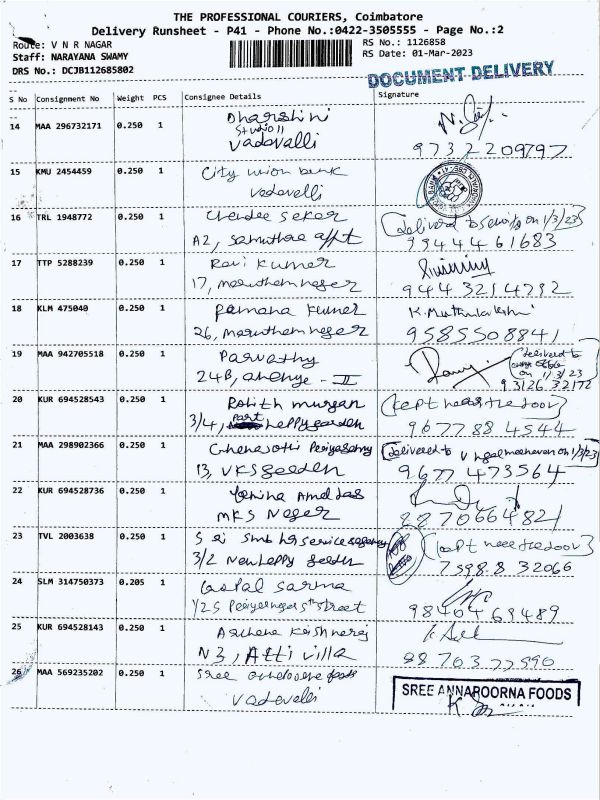 THE PROFESSIONAL COURIERS, Coimbatore
Delivery Runsheet - P41 - Phone No.:0422-3505555 - Page No.:2
Route: V N R NAGAR
Staff: NARAYANA SWAMY
DRS No.: DCJB112685802
RS No.: 1126858
RS Date: 01-Mar-2023
DOCUMENT DELIVERY
S No Consignment No Weight PCS Consignee Details Signature
14 MAA 296732171 0.250 1 Dharshini
Studio 11
Vadavalli
9732209797
15 KMU 2454459 0.250 1 City union bank
Vadavelli
16 TRL 1948772 0.250 1 sekar (Delivered to on 1/3/23)
A2, appt 9944461683
17 TTP 5288239 0.250 1 Ravi Kumer
17, maruthamneger 9443214732
18 KLM 475040 0.250 1 ramana Kumer K. Muthulakshmi
26, maruthemneger 9585508841
19 MAA 942705518 0.250 1 Parvathy (delivered to
24B, - II on 1/3/23
93126 32172
20 KUR 694528543 0.250 1 Rohith murgan (Kept near the door)
3/4, part Leppy garden 9677884544
21 MAA 298902366 0.250 1 Periyasamy (delivered to on 1/3/23)
13, VKS Geeden 9677473564
22 KUR 694528736 0.250 1
MKS Nager 2270664821
23 TVL 2003638 0.250 1 S ai service agency (Kept near the door)
3/2 New Leppy Geeden 75988 32066
24 SLM 314750373 0.205 1 Gopal Sarma
1/25 Periyernager 5th street 9840469489
25 KUR 694528143 0.250 1 Archena Krishneraj
N3, Atti villa 88703 77590
26 MAA 569235202 0.250 1 Sree foods SREE ANNAPOORNA FOODS
Vadavelli